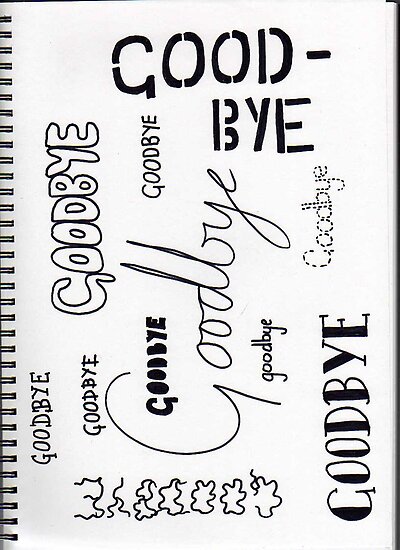 GOOD-
BYE
GOODBYE
GOODBYE
Goodbye
Goodbye
GOODBYE
goodbye
GOODBYE
GOODBYE
GOODBYE